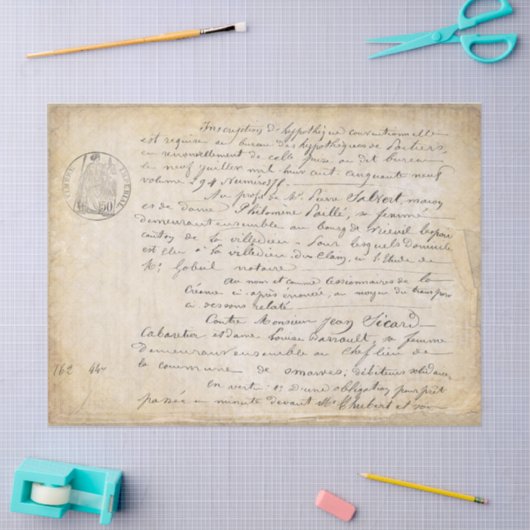 Inscription de hypothèque conventionnelle
est requise au bureau des hypothèques de Poitiers,
en renouvellement de celle prise au dit bureau
le neuf juillet mil huit cent cinquante neuf
volume 294 Numéro
Au profit de Mr Pierre Jabert, maçon
et de dame Philomine Paillé, sa femme
demeurant ensemble au bourg de
canton de la villedieu - Pour lesquels domicile
est élu à la villedieu, du Clain, en l'Etude de
Mr Gobul notaire
au nom et comme cessionnaires de la
Créance ci-après énoncée, au moyen du transport
ci dessous relaté
Contre Monsieur Jean Sicard
Cabaretier et dame Louise Barrault, sa femme
demeurant ensemble au Chef lieu de
la commune de débiteurs solidaires
En vertu 1° d'une obligation pour prêt
passée en minute devant Me et son
TIMBRE IMPERIAL
50